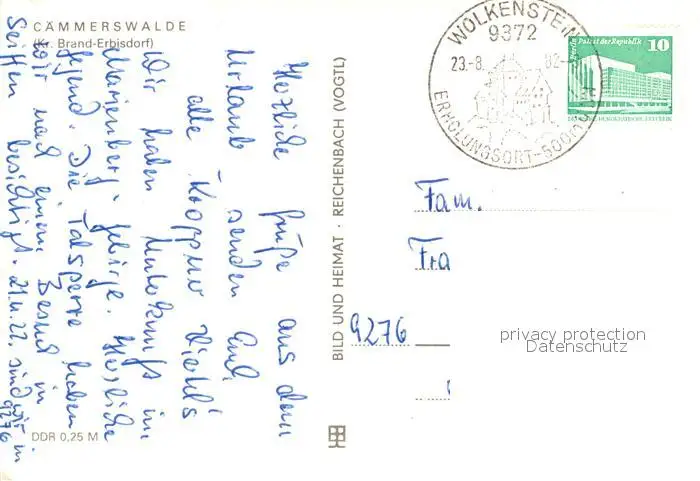 CÄMMERSWALDE
(Kr. Brand-Erbisdorf)
Herzliche Grüße aus dem
Urlaub senden Euch
alle
Wir haben Unterkunft im
Marienberg. gebirge. Herrliche
Gegend. Die Talsperre haben
wir nach einem Besuch in
Seiffen besichtigt. 21. u. 22. sind wir in
9276
DDR 0,25 M
BILD UND HEIMAT · REICHENBACH (VOGTL)
WOLKENSTEIN
9372
23.-8. 82-
ERHOLUNGSORT-500m ü.M.
Berlin, Palast der Republik 10
DEUTSCHE DEMOKRATISCHE REPUBLIK
Fam.
Fra
9276
privacy protection
Datenschutz